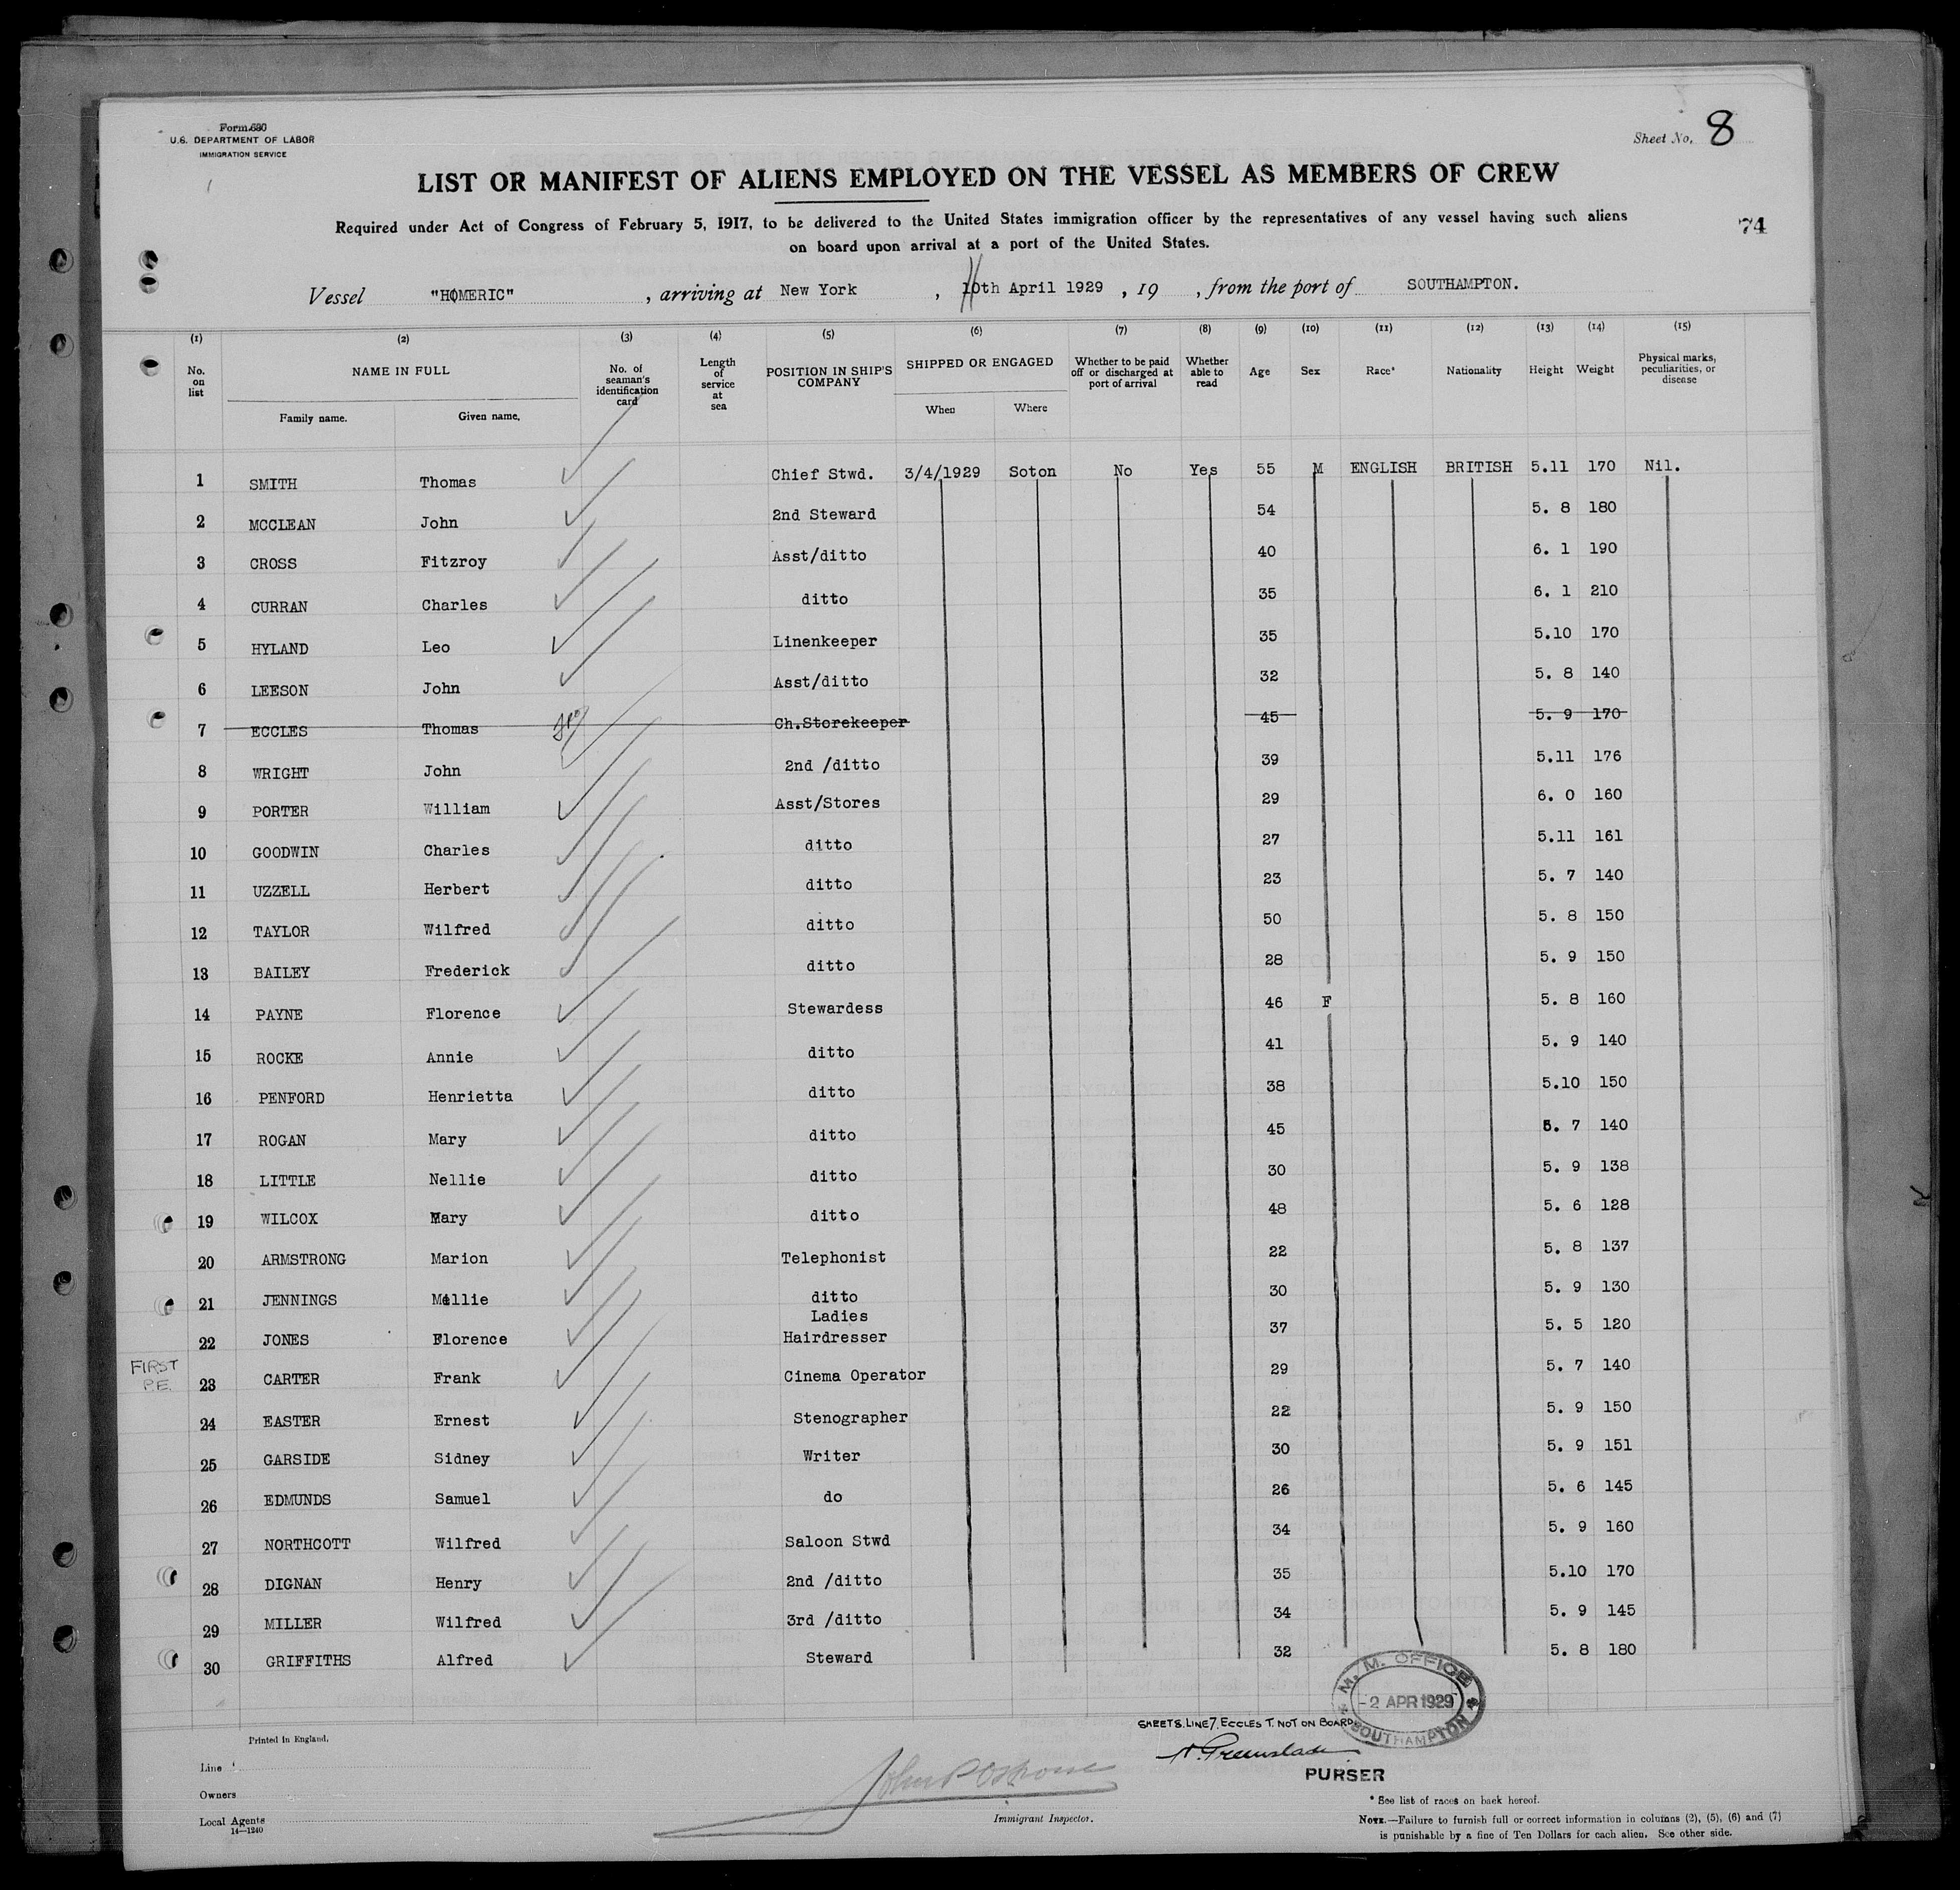 Form 680
U.S. DEPARTMENT OF LABOR
IMMIGRATION SERVICE
Sheet No. 8
LIST OR MANIFEST OF ALIENS EMPLOYED ON THE VESSEL AS MEMBERS OF CREW
Required under Act of Congress of February 5, 1917, to be delivered to the United States immigration officer by the representatives of any vessel having such aliens
on board upon arrival at a port of the United States.
74
Vessel "HOMERIC", arriving at New York, 10th April 1929, 19, from the port of SOUTHAMPTON.
(1) (2) (3) (4) (5) (6) (7) (8) (9) (10) (11) (12) (13) (14) (15)
No. on list NAME IN FULL Family name. Given name. No. of seaman's identification card Length of service at sea POSITION IN SHIP'S COMPANY SHIPPED OR ENGAGED When Where Whether to be paid off or discharged at port of arrival Whether able to read Age Sex Race* Nationality Height Weight Physical marks, peculiarities, or disease
1 SMITH Thomas Chief Stwd. 3/4/1929 Soton No Yes 55 M ENGLISH BRITISH 5.11 170 Nil.
2 MCCLEAN John 2nd Steward 54 5. 8 180
3 CROSS Fitzroy Asst/ditto 40 6. 1 190
4 CURRAN Charles ditto 35 6. 1 210
5 HYLAND Leo Linenkeeper 35 5.10 170
6 LEESON John Asst/ditto 32 5. 8 140
7 ECCLES Thomas Ch.Storekeeper 45 5. 9 170
8 WRIGHT John 2nd /ditto 39 5.11 176
9 PORTER William Asst/Stores 29 6. 0 160
10 GOODWIN Charles ditto 27 5.11 161
11 UZZELL Herbert ditto 23 5. 7 140
12 TAYLOR Wilfred ditto 50 5. 8 150
13 BAILEY Frederick ditto 28 5. 9 150
14 PAYNE Florence Stewardess 46 F 5. 8 160
15 ROCKE Annie ditto 41 5. 9 140
16 PENFORD Henrietta ditto 38 5.10 150
17 ROGAN Mary ditto 45 5. 7 140
18 LITTLE Nellie ditto 30 5. 9 138
19 WILCOX Mary ditto 48 5. 6 128
20 ARMSTRONG Marion Telephonist 22 5. 8 137
21 JENNINGS Millie ditto 30 5. 9 130
22 JONES Florence Ladies Hairdresser 37 5. 5 120
FIRST P.E. 23 CARTER Frank Cinema Operator 29 5. 7 140
24 EASTER Ernest Stenographer 22 5. 9 150
25 GARSIDE Sidney Writer 30 5. 9 151
26 EDMUNDS Samuel do 26 5. 6 145
27 NORTHCOTT Wilfred Saloon Stwd 34 5. 9 160
28 DIGNAN Henry 2nd /ditto 35 5.10 170
29 MILLER Wilfred 3rd /ditto 34 5. 9 145
30 GRIFFITHS Alfred Steward 32 5. 8 180
M. M. OFFICE
-2 APR 1929
SOUTHAMPTON
SHEET 8. LINE 7. ECCLES T. NOT ON BOARD
Greenslade
PURSER
Printed in England.
Line
Owners
Local Agents
14—1240
Immigrant Inspector.
* See list of races on back hereof.
NOTE.—Failure to furnish full or correct information in columns (2), (5), (6) and (7)
is punishable by a fine of Ten Dollars for each alien. See other side.